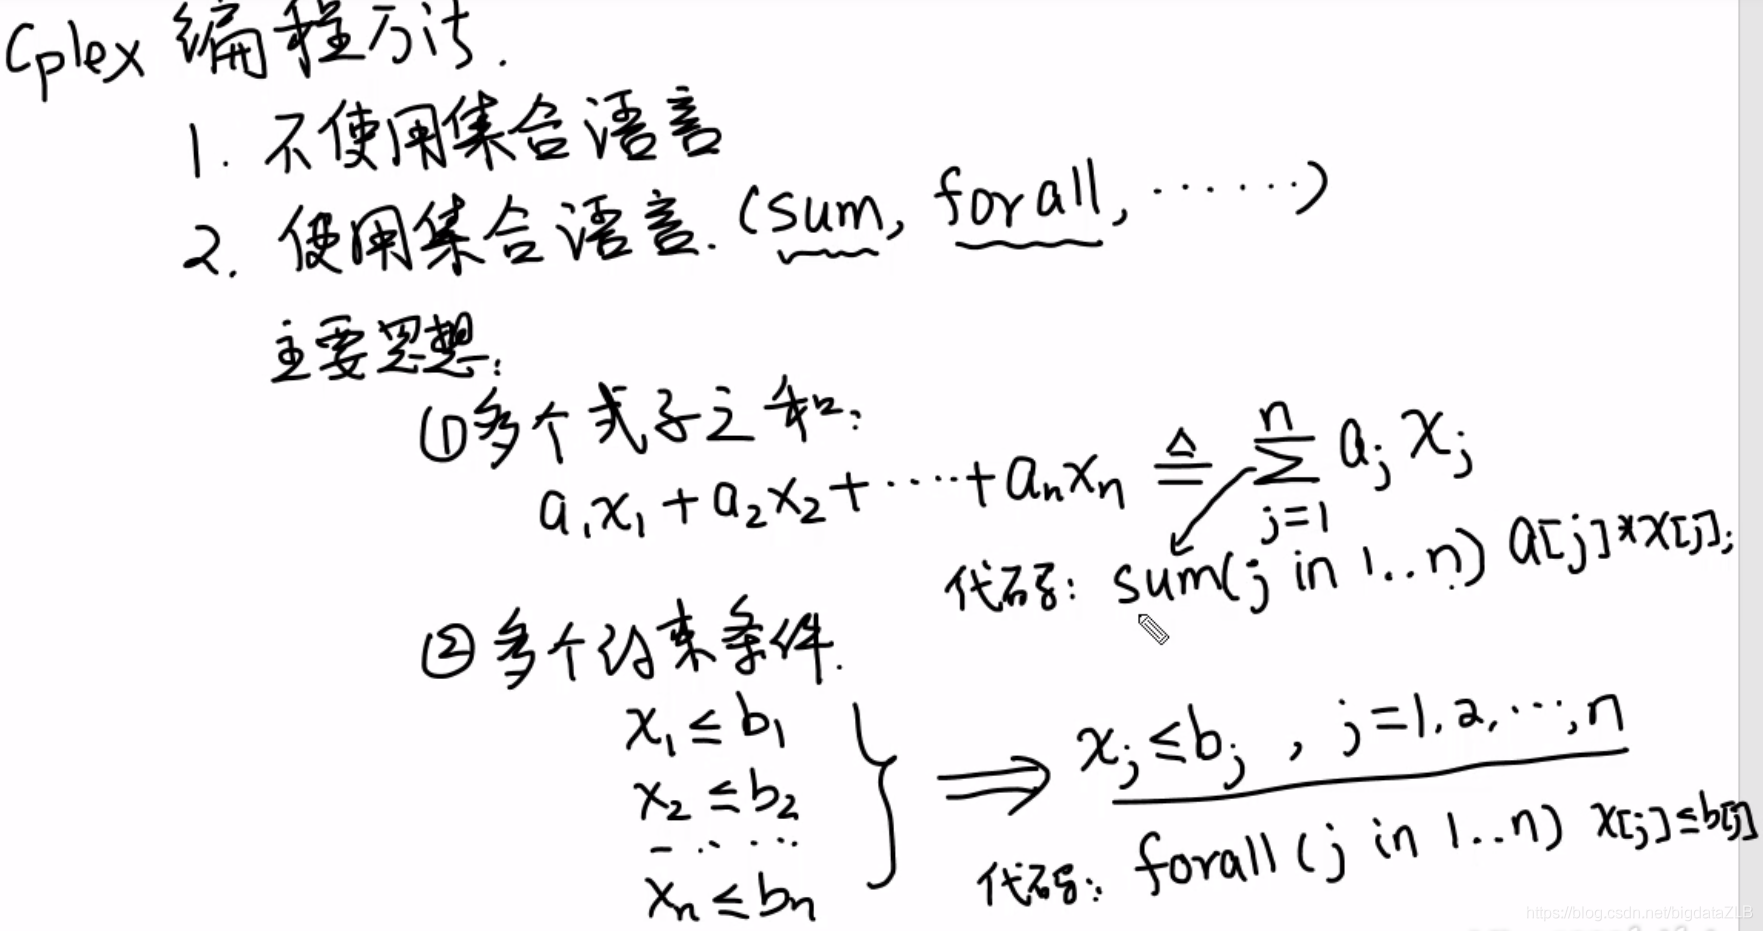 Cplex 编程方法.
1. 不使用集合语言
2. 使用集合语言. (sum, forall, ......)
主要思想:
①多个式子之和:
a₁x₁ + a₂x₂ + ····· + aₙxₙ ≜ ∑ⁿⱼ₌₁ aⱼ xⱼ
代码: sum(j in 1..n) a[j]*x[j];
②多个约束条件.
x₁ ≤ b₁
x₂ ≤ b₂
- · · · ·
xₙ ≤ bₙ
⟹ xⱼ ≤ bⱼ , j=1,2,···,n
代码: forall (j in 1..n) x[j]≤b[j]
https://blog.csdn.net/bigdataZLB